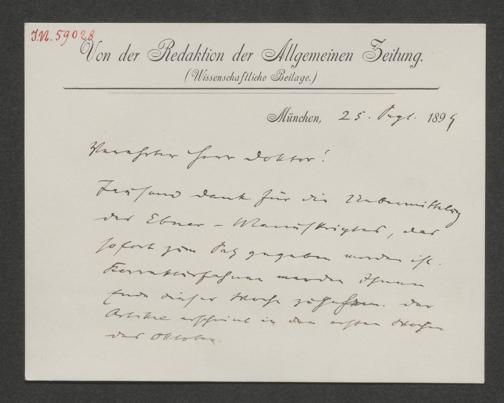 J.N. 59028
Von der Redaktion der Allgemeinen Zeitung.
(Wissenschaftliche Beilage.)
München, 25. Sept. 1899
Verehrter Herr Doktor!
Tausend Dank für die Uebermittlung
des Ebner-Manuskriptes, das
sofort zum Satz gegeben worden ist.
Korrekturfahnen werden Ihnen
Ende dieser Woche zugehen. Der
Artikel erscheint in den ersten Wochen
des Oktober.